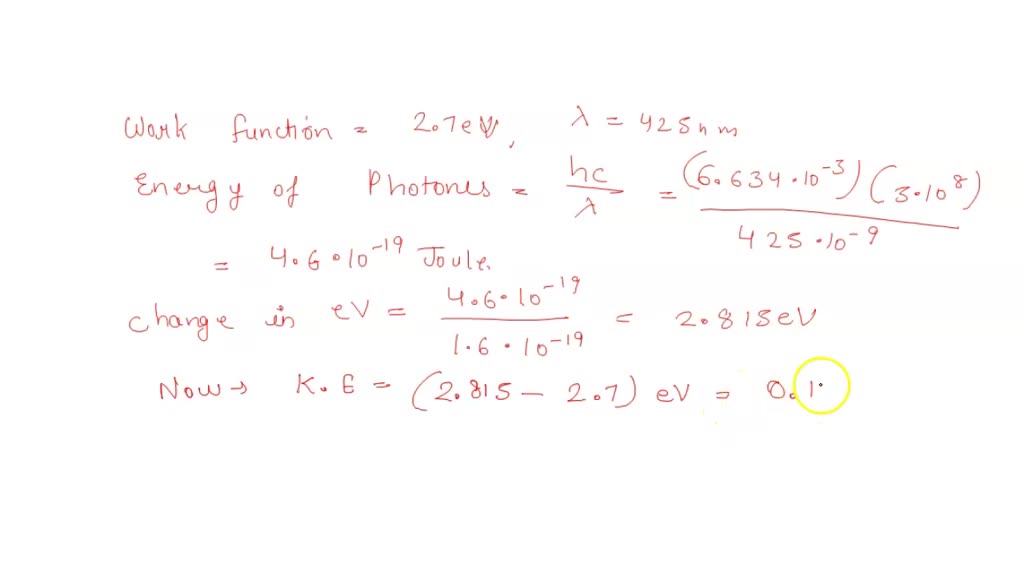 Work function = 2.7eV, λ = 425nm
Energy of Photones = hc/λ = (6.634·10⁻³)(3·10⁸)/425·10⁻⁹
= 4.6·10⁻¹⁹ Joule.
Change in eV = 4.6·10⁻¹⁹/1.6·10⁻¹⁹ = 2.815eV
Now → K.E = (2.815 − 2.7) eV = 0.1